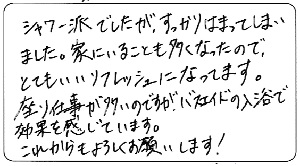 シャワー派でしたが、すっかりはまってしまい
ました。家にいることも多くなったので、
とてもいいリフレッシュになってます。
座り仕事が多いのですが、バスエイドの入浴で
効果を感じています。
これからもよろしくお願いします！